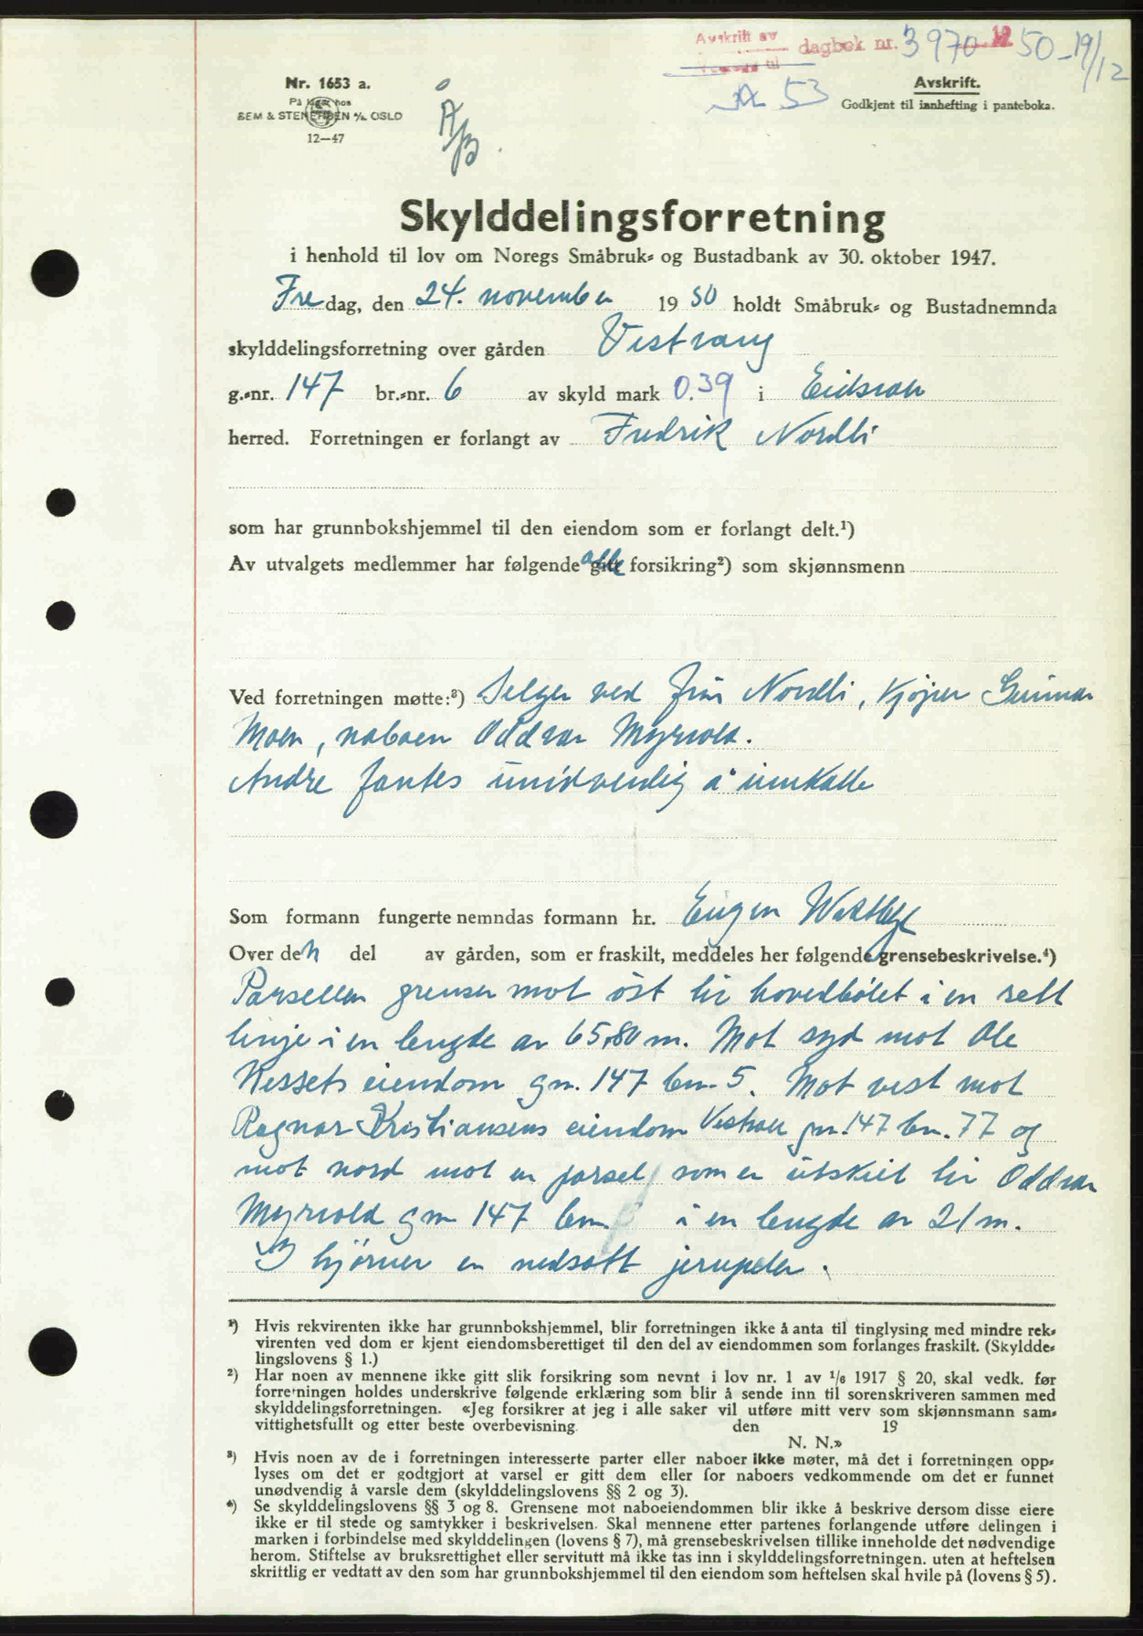 Avskrift av dagbok nr. 3970 - 1950 - 19/12
A 53
Nr. 1653 a.
På lager hos
SEM & STENERSEN A/S OSLO
12—47
Avskrift.
Godkjent til innhefting i panteboka.
Skylddelingsforretning
i henhold til lov om Noregs Småbruk- og Bustadbank av 30. oktober 1947.
Fredag, den 24. november 1950 holdt Småbruk- og Bustadnemnda
skylddelingsforretning over gården Vestvang
g.-nr. 147 br.-nr. 6 av skyld mark 0.39 i Eidsvoll
herred. Forretningen er forlangt av Fredrik Nordli
som har grunnbokshjemmel til den eiendom som er forlangt delt.¹)
Av utvalgets medlemmer har følgende gitt forsikring²) som skjønnsmenn
alle
Ved forretningen møtte:³) Selger ved fru Nordli, kjøper Gunnar
Moen, naboen Oddvar Myrvold.
Andre fantes unødvendig å innkalle
Som formann fungerte nemndas formann hr. Eugen
Over den del av gården, som er fraskilt, meddeles her følgende grensebeskrivelse.⁴)
Parsellen grenser mot öst til hovedbölet i en rett
linje i en lengde av 65,80 m. Mot syd mot Ole
eiendom gn. 147 bn. 5. Mot vest mot
Ragnar Kristiansens eiendom gn. 147 bn. 77 og
mot nord mot en parsel som er utskilt til Oddvar
Myrvold gn 147 bn. i en lengde av 21 m.
I hjörner er nedsatt jernpeler.
¹) Hvis rekvirenten ikke har grunnbokshjemmel, blir forretningen ikke å anta til tinglysing med mindre rek-
virenten ved dom er kjent eiendomsberettiget til den del av eiendommen som forlanges fraskilt. (Skyldde-
lingslovens § 1.)
²) Har noen av mennene ikke gitt slik forsikring som nevnt i lov nr. 1 av 1/6 1917 § 20, skal vedk. før
forretningen holdes underskrive følgende erklæring som blir å sende inn til sorenskriveren sammen med
skylddelingsforretningen. «Jeg forsikrer at jeg i alle saker vil utføre mitt verv som skjønnsmann sam-
vittighetsfullt og etter beste overbevisning. den 19
N. N.»
³) Hvis noen av de i forretningen interesserte parter eller naboer ikke møter, må det i forretningen opp-
lyses om det er godtgjort at varsel er gitt dem eller for naboers vedkommende om det er funnet
unødvendig å varsle dem (skylddelingslovens §§ 2 og 3).
⁴) Se skylddelingslovens §§ 3 og 8. Grensene mot naboeiendommen blir ikke å beskrive dersom disse eiere
ikke er til stede og samtykker i beskrivelsen. Skal mennene etter partenes forlangende utføre delingen i
marken i forbindelse med skylddelingen (lovens § 7), må grensebeskrivelsen tillike inneholde det nødvendige
herom. Stiftelse av bruksrettighet eller servitutt må ikke tas inn i skylddelingsforretningen. uten at heftelsen
skrittlig er vedtatt av den som har grunnbokshjemmel til den eiendom som heftelsen skal hvile på (lovens § 5).